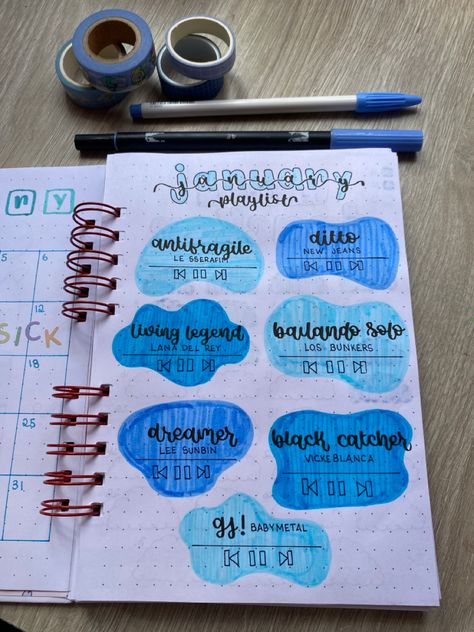 n y
5 6
12
SICK
18
25
31
january
january
playlist
antifragile
LE SSERAFIM
ditto
NEW JEANS
living legend
LANA DEL REY
bailando solo
LOS BUNKERS
dreamer
LEE SUNBIN
black catcher
VICKEBLANCA
gj! BABYMETAL